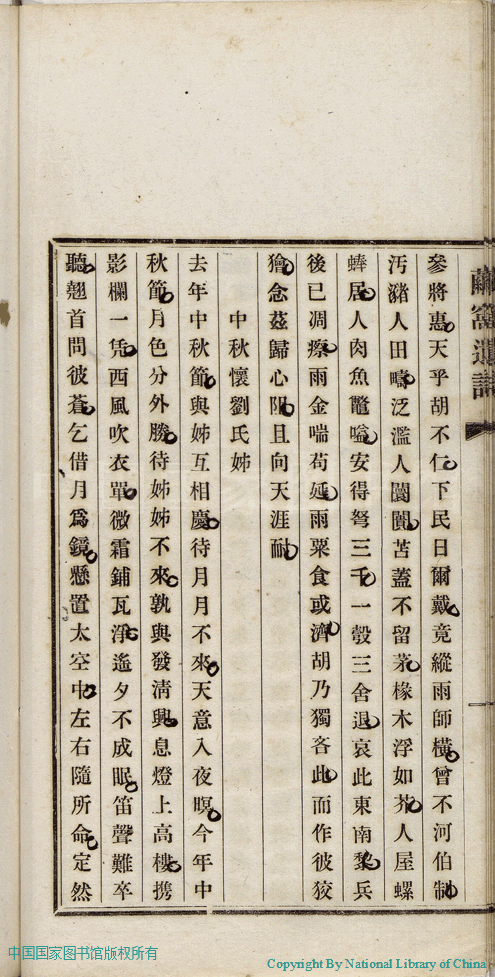 繭窩遺詩
參將惠天乎胡不仁下民日爾戴竟縱雨師橫曾不河伯制
汚豬人田疇泛濫人闤闠苫蓋不留茅椽木浮如芥人屋螺
蜯居人肉魚鼈嗌安得弩三千一彀三舍退哀此東南黎兵
後已凋瘵雨金喘苟延雨粟食或濟胡乃獨吝此而作彼狡
獪念茲歸心阻且向天涯耐
中秋懷劉氏姊
去年中秋節與姊互相慶待月月不來天意入夜暝今年中
秋節月色分外勝待姊姊不來孰與發淸興息燈上高樓攜
影欄一凭西風吹衣單微霜鋪瓦淨遙夕不成眠笛聲難卒
聽翹首問彼蒼乞借月爲鏡懸置太空中左右隨所命定然
中国国家图书馆版权所有
Copyright By National Library of China